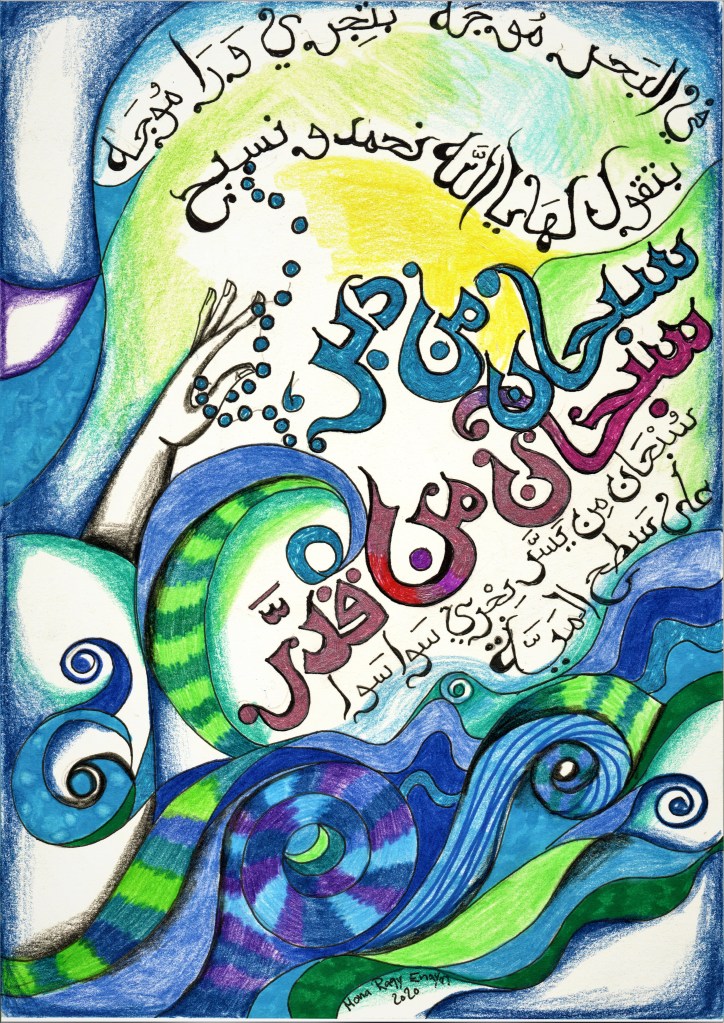 في البحر مُوجَه بتِجري وَرَا مُوجَه
بتقول لها يا اللَّه نحمد و نسبح
سبحان من دبر
سبحان من قدَّر
سُبْحَان مِن يَسَّر يِجْرِي سَوا سَوا
على سَطح الميَّة
Mona Ragy Enayat
2020